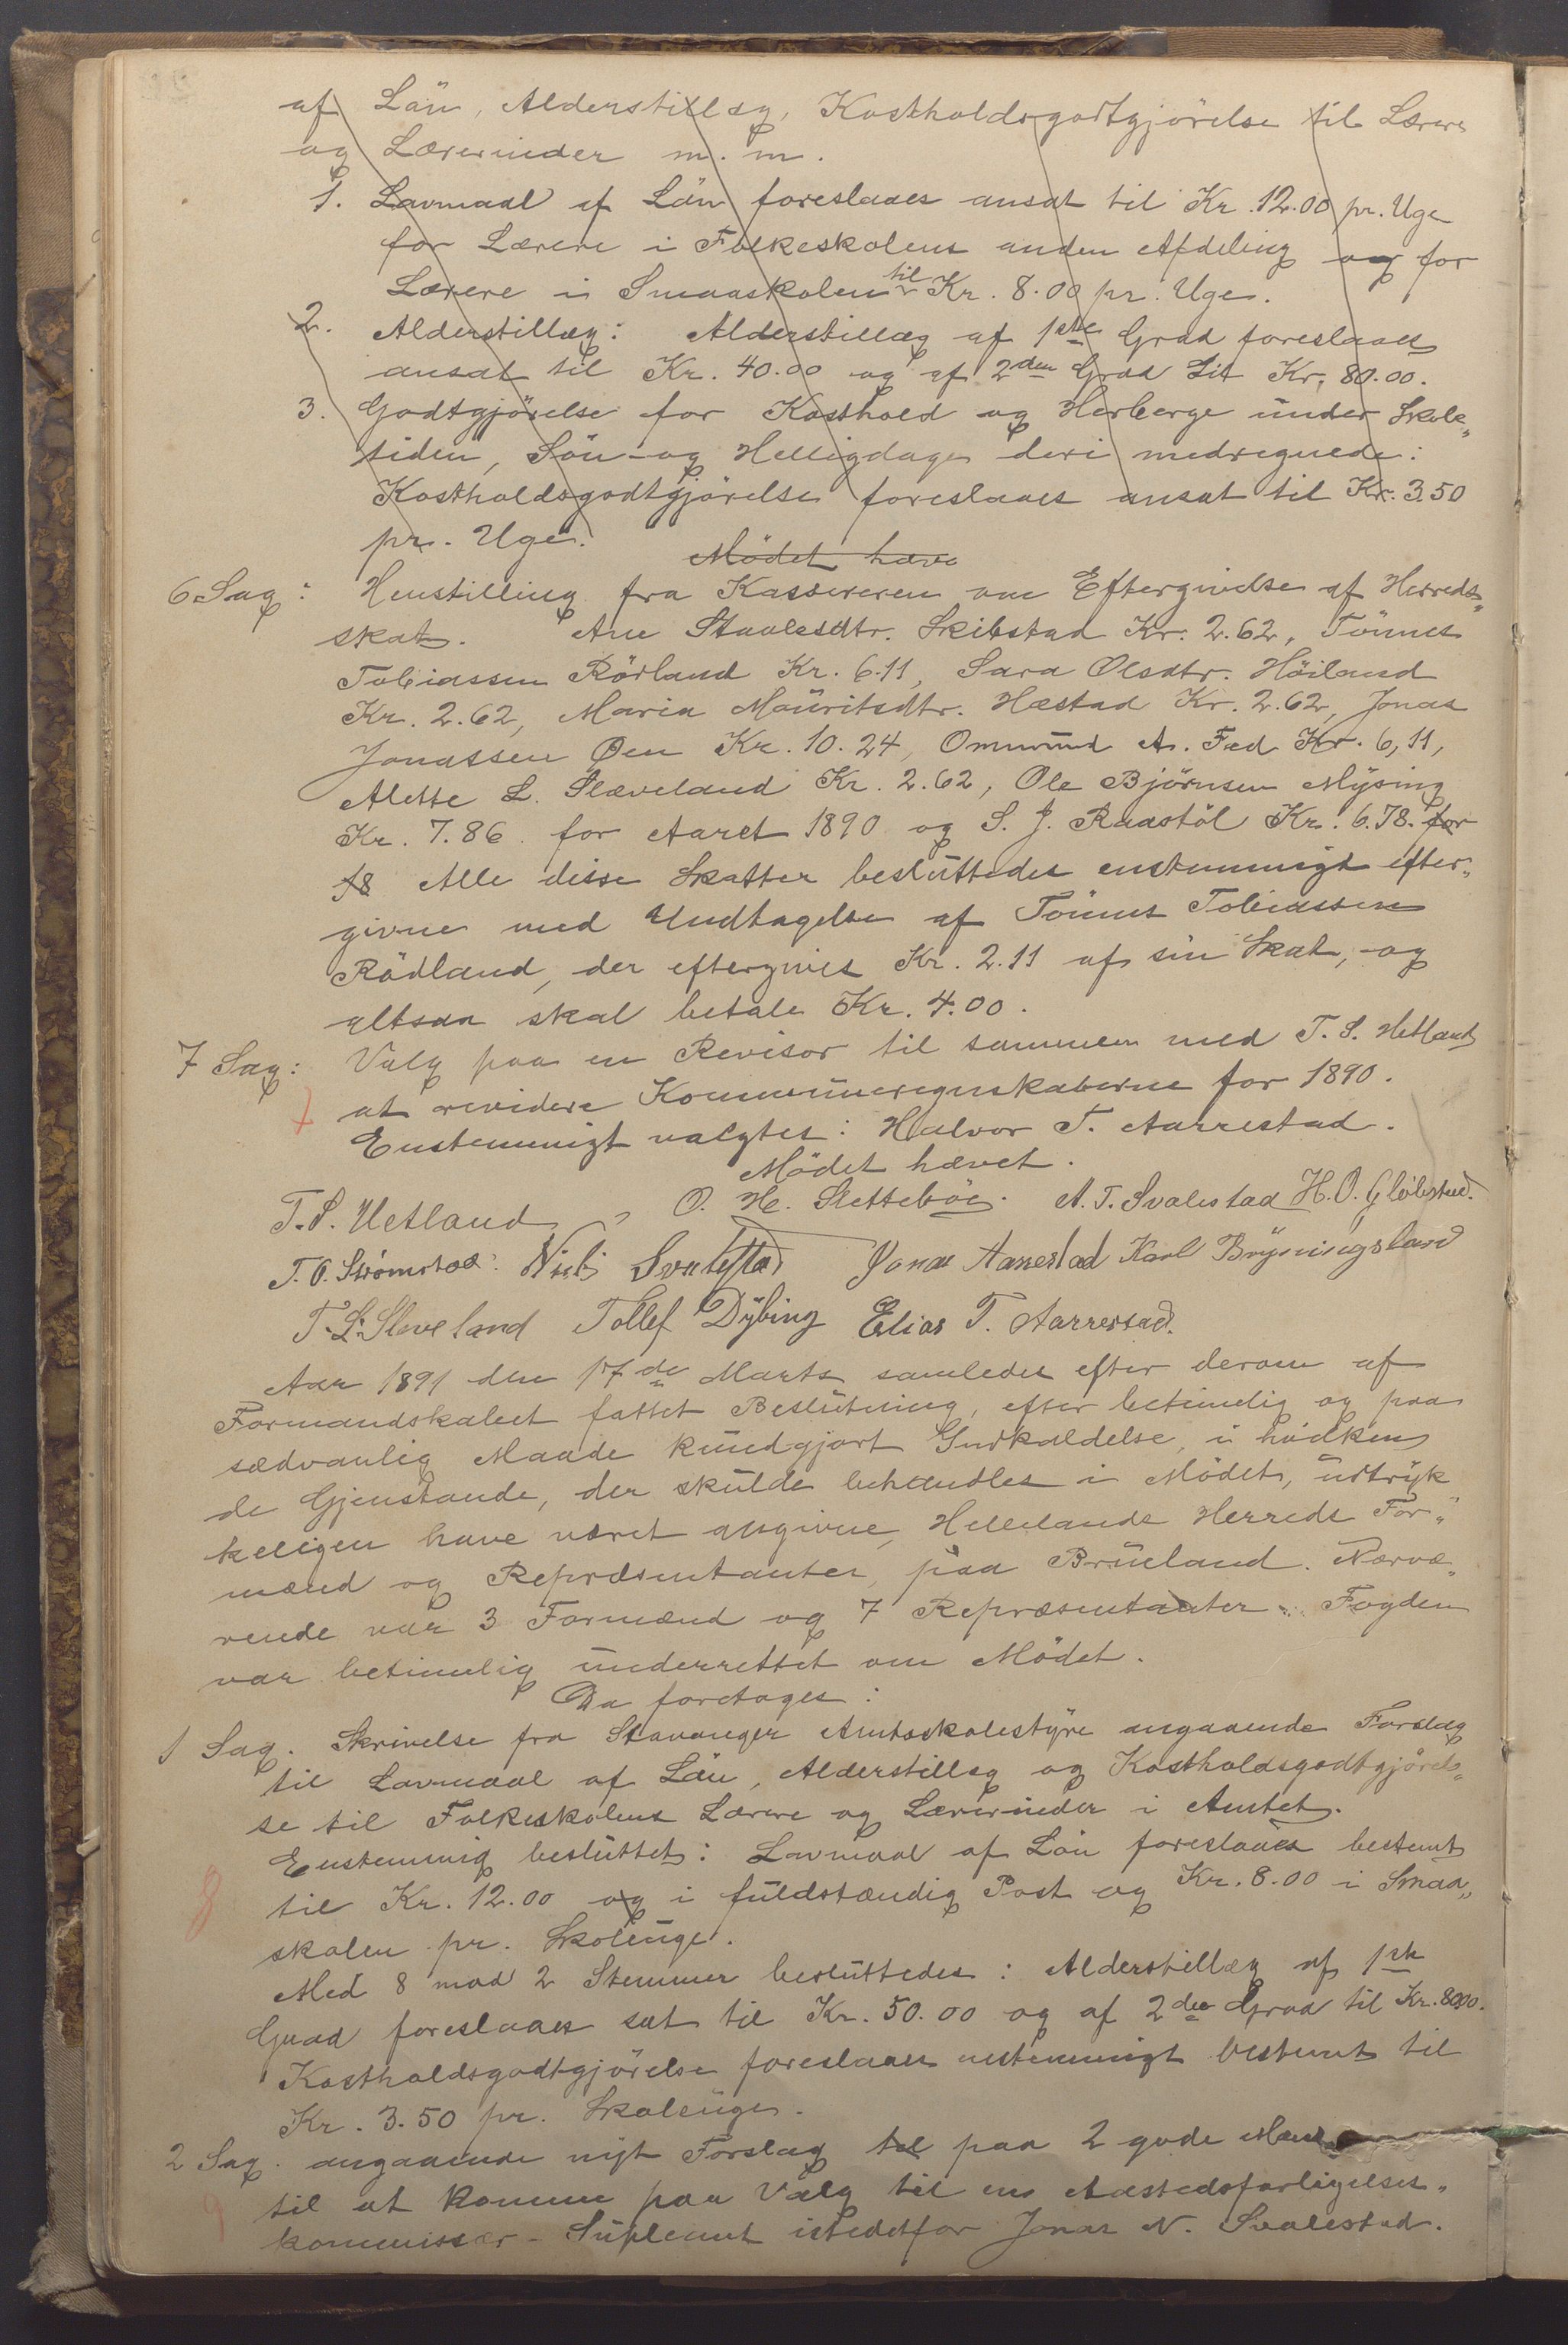 af Lön, Alderstillæg, Kostholdsgodtgjörelse til Lærere
og Lærerinder m. m.
1. Lavmaal af Lön foreslaaes ansat til Kr. 12.00 pr. Uge
for Lærere i Folkeskolens anden Afdeling og for
Lærere i Smaaskolen til Kr. 8.00 pr. Uge.
2. Alderstillæg: Alderstillæg af 1ste Grad foreslaaes
ansat til Kr. 40.00 og af 2den Grad til Kr. 80.00.
3. Godtgjörelse for Kosthold og Herberge under Skole„
tiden, Sön- og Helligdage deri medregnede:
Kostholdsgodtgjörelse foreslaaes ansat til Kr. 3.50
pr. Uge.
Mödet hæve
6 Sag: Henstilling fra Kassereren om Eftergivelse af Herreds„
skat. Ane Staalesdtr. Skibstad Kr. 2.62, Tönnes
Tobiassen Rödland Kr. 6.11, Sara Olsdtr. Höiland
Kr. 2.62, Maria Mauritsdtr. Hæstad Kr. 2.62, Jonas
Jonassen Øen Kr. 10.24, Ommund A. Fed Kr. 6,11,
Alette L. Slæveland Kr. 2.62, Ole Björnsen Mysing
Kr. 7.86 for Aaret 1890 og S. J. Raastöl Kr. 6.78. for
18 Alle disse Skatter besluttedes enstemmigt efter„
givne med Undtagelse af Tönnes Tobiassen
Rödland, der eftergives Kr. 2.11 af sin Skat, og
altsaa skal betale Kr. 4.00.
7 Sag: Valg paa en Revisor til sammen med T. S. Hetland
at revidere Kommuneregnskaberne for 1890.
Enstemmigt valgtes: Halvor T. Aarrestad.
Mödet hævet.
T. S. Hetland O. H. Sletteböe. A. T. Svalestad H. O. Gløbstad.
T. O. Strømstad. Niels Svalestad Jonas Aarrestad Karl Bryningsland
T. L. Sleveland Tollef Dybing Elias T. Aarrestad.
Aar 1891 den 17de Marts samledes efter derom af
Formandskabet fattet Beslutning, efter betimelig og paa
sædvanlig Maade kundgjort Indkaldelse, i hvilken
de Gjenstande, der skulde behandles i Mödet, udtryk
keligen have været angivne, Hellelands Herreds For„
mænd og Repræsentanter, paa Brueland. Nærvæ„
rende var 3 Formænd og 7 Repræsentanter. Fogden
var betimelig underrettet om Mödet.
Da foretoges:
1 Sag. Skrivelse fra Stavanger Amtsskolestyre angaaende Forslag
til Lavmaal af Lön, Alderstillæg og Kostholdsgodtgjörel„
se til Folkeskolens Lærere og Lærerinder i Amtet.
Enstemmig besluttet: Lavmaal af Lön foreslaaes bestemt
til Kr. 12.00 og i fuldstændig Post og Kr. 8.00 i Smaa„
skolen pr. Skoleuge.
Med 8 mod 2 Stemmer besluttedes: Alderstillæg af 1ste
Grad foreslaaes sat til Kr. 50.00 og af 2den Grad til Kr. 80.00.
Kostholdsgodtgjörelse foreslaaes enstemmigt bestemt til
Kr. 3.50 pr. Skoleuge.
2 Sag. angaaende nyt Forslag til paa 2 gode Mænd
til at komme paa Valg til en Aastedsforligelses„
kommissær-Suplemt istedetfor Jonas N. Svalestad.